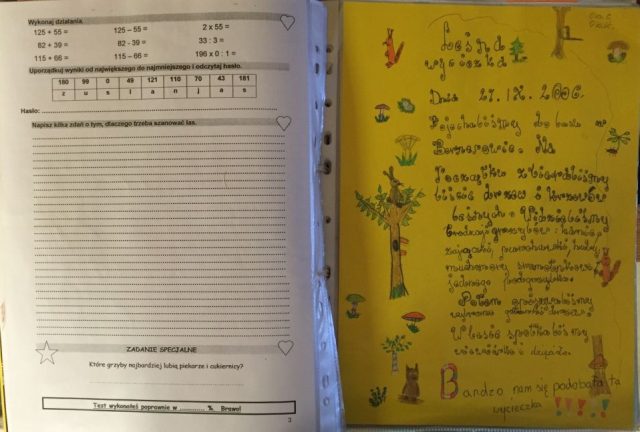 Wykonaj działania.
125 + 55 = 125 – 55 = 2 x 55 =
82 + 39 = 82 - 39 = 33 : 3 =
115 + 66 = 115 – 66 = 196 x 0 : 1 =
Uporządkuj wyniki od największego do najmniejszego i odczytaj hasło.
180 99 0 49 121 110 70 43 181
z u s l a n j a s
Hasło:
Napisz kilka zdań o tym, dlaczego trzeba szanować las.
ZADANIE SPECJALNE
Które grzyby najbardziej lubią piekarze i cukiernicy?
Test wykonałeś poprawnie w ........... %. Brawo!
3
Leśna
wycieczka
Dnia 27. IX. 2006.
Pojechaliśmy do lasu w
Na
początku zbieraliśmy
liście drzew i krzewów
leśnych. Widzieliśmy
rodzaje grzybów:
jednego podgrzybka.
Potem
W lesie spotkaliśmy
Bardzo nam się podobała ta
wycieczka !!!..!